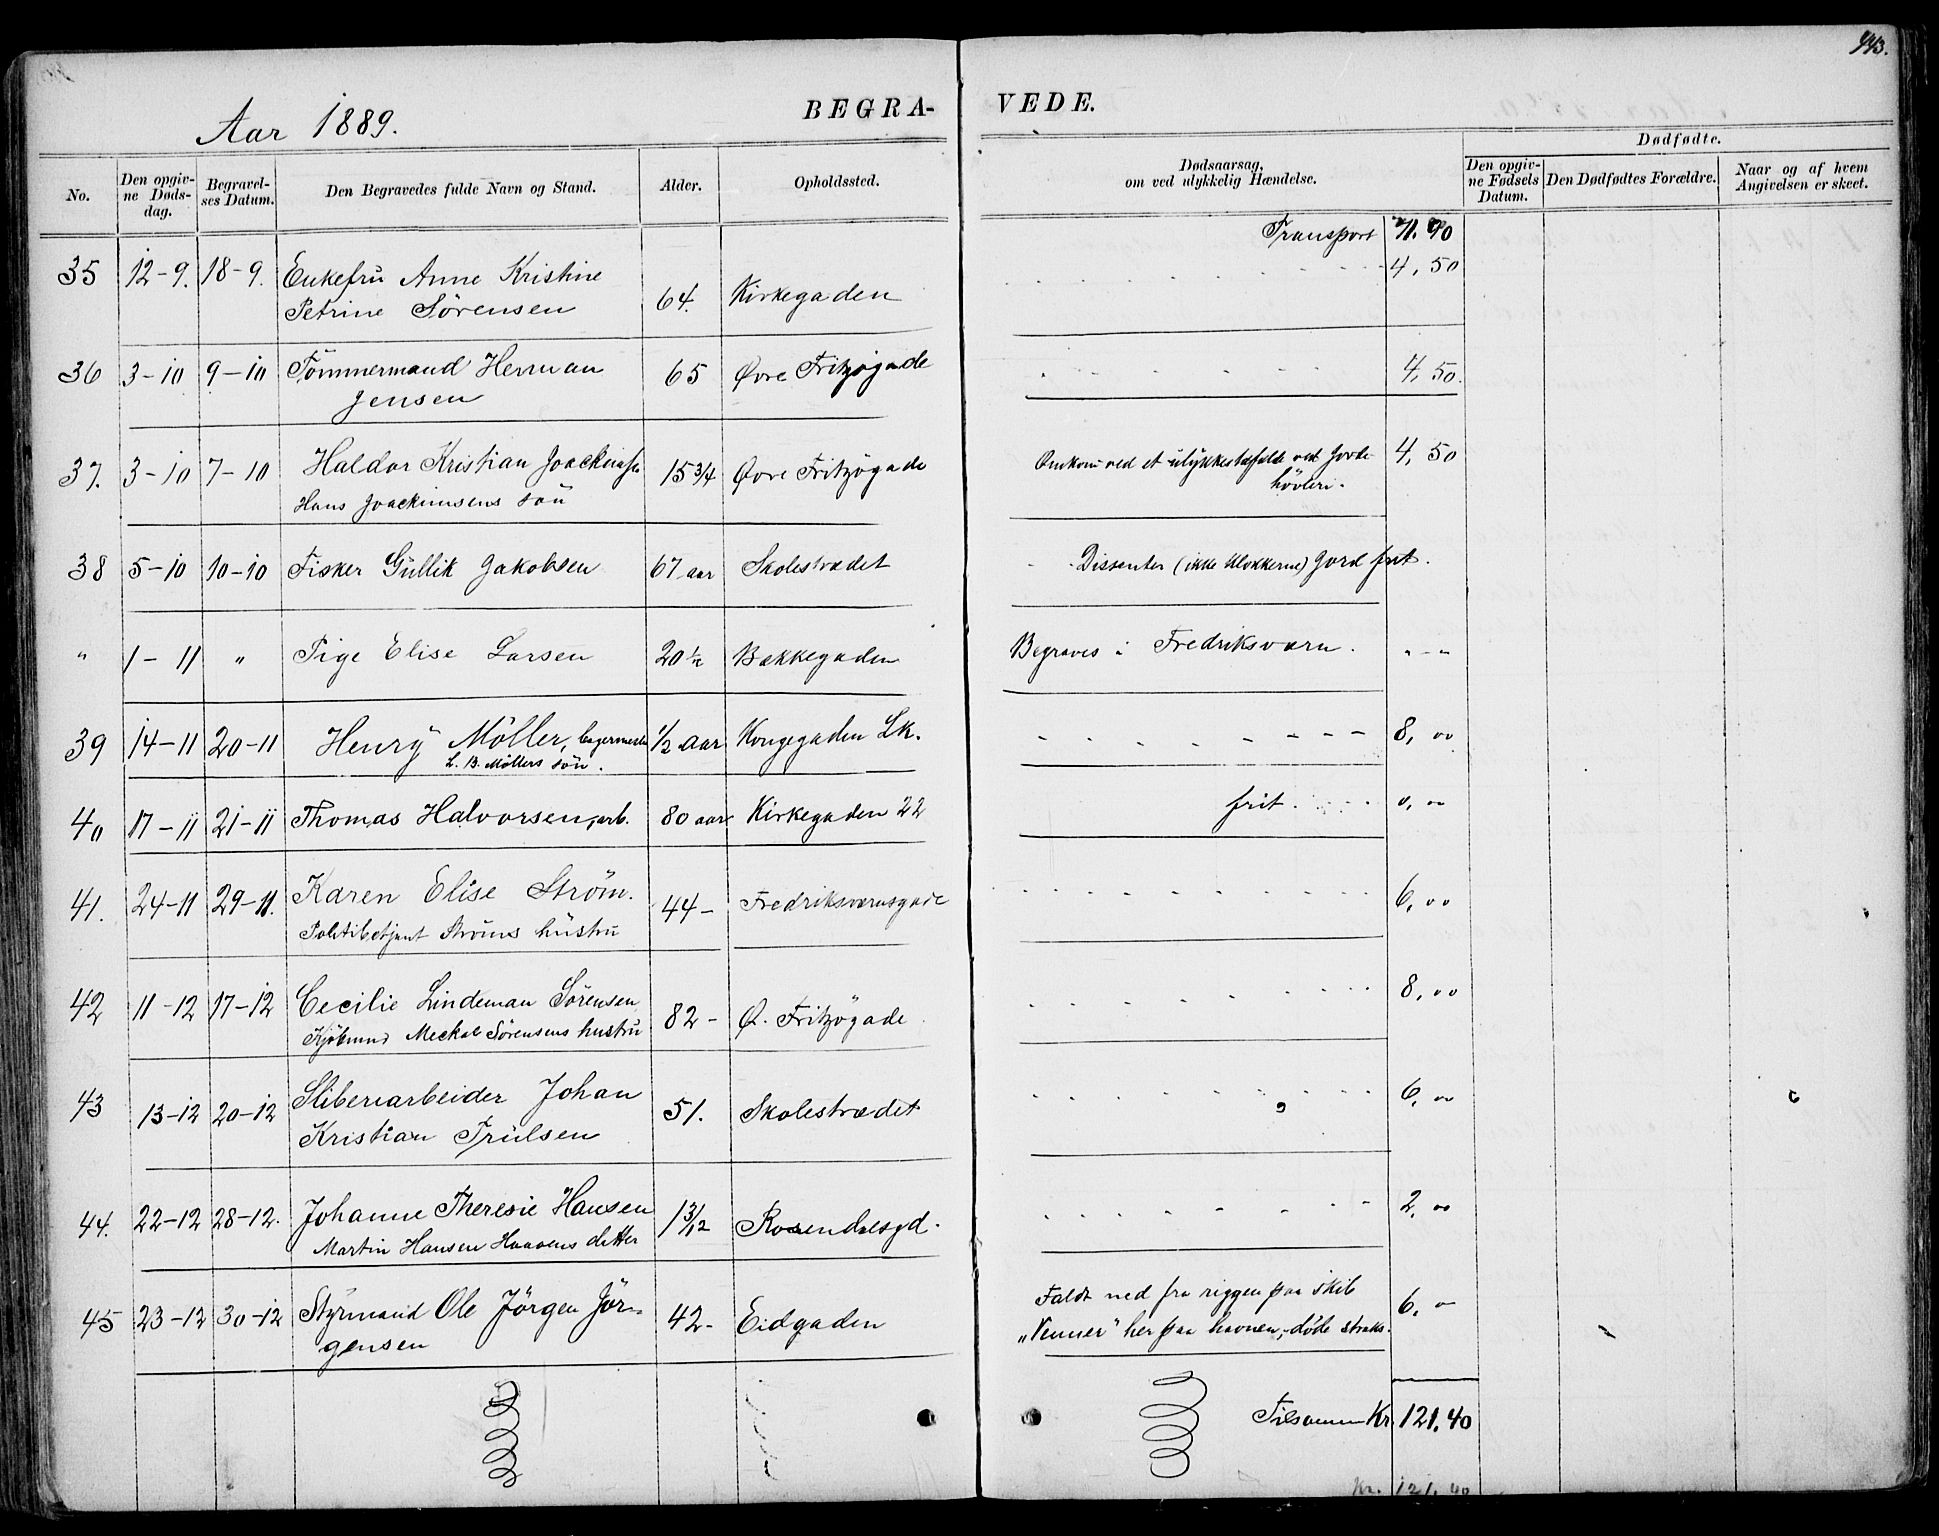 443.
Aar 1889.
BEGRA-
VEDE.
No.
Den opgiv-
ne Døds-
dag.
Begravel-
ses Datum.
Den Begravedes fulde Navn og Stand.
Alder.
Opholdssted.
Dødsaarsag,
om ved ulykkelig Hændelse.
Dødfødte.
Den opgiv-
ne Fødsels
Datum.
Den Dødfødtes Forældre.
Naar og af hvem
Angivelsen er skeet.
Transport 71.90
35 12-9. 18-9. Enkefru Anne Kristine 4,50
Petrine Sørensen 64. Kirkegaden
36 3-10 9-10 Tömmermand Herman 65 Øvre Fritzøgade 4,50.
Jensen
37. 3-10 7-10 Haldor Kristian Joachimsen 15 3/4 Øvre Fritzögade Omkom ved et ulykkestilfælde ved 4,50
Hans Joachimsens sön hövleri.
38 5-10 10-10 Fisker Gullik Jakobsen 67 aar Skolestrædet Dissenter (ikke klokkerne) Jord frit.
" 1-11 " Pige Elise Larsen 20 1/2 Bakkegaden Begraves i Fredriksværn. " - "
39 14-11 20-11 Henry Möller, 1/2 aar Kongegaden Lk. 8,00
L. B. Möllers sön.
40 17-11 21-11 Thomas Halvorsen, arb. 80 aar Kirkegaden 22 frit. 0,00
41. 24-11 29-11. Karen Elise Ström. 44- Fredriksværnsgade 6,00
Politibetjent Ströms hustru
42 11-12 17-12 Cecilie Lindeman Sörensen 82- Ø. Fritzögade 8,00
Kjöbmd Meckal Sörensens hustru
43 13-12 20-12 Sliberiarbeider Johan 51. Skolestrædet 6,00
Kristian Trulsen
44. 22-12 28-12. Johanne Theresie Hansen 1 3/12 Rosendalsgd. 2,00
Martin Hansen Haavens datter
45 23-12 30-12 Styrmand Ole Jörgen Jör- 42- Eidgaden Faldt ned fra riggen paa skib 6,-
gensen „Venner" her paa havnen,-døde straks.
Tilsammen Kr. 121.40
Kr. 121.40